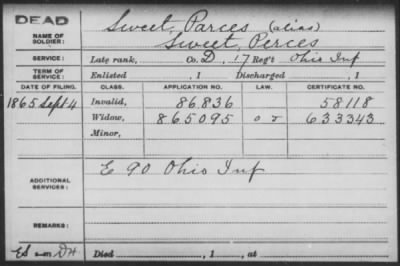 DEAD
NAME OF SOLDIER: Sweet, Parces (alias)
Sweet, Perces
SERVICE: Late rank, Co. D, 17 Reg't Ohio Inf
TERM OF SERVICE: Enlisted , 1 Discharged , 1
DATE OF FILING. CLASS. APPLICATION NO. LAW. CERTIFICATE NO.
1865 Sept 4 Invalid, 86.836 58118
Widow, 865095 o r 633343
Minor,
ADDITIONAL SERVICES: E 90 Ohio Inf
REMARKS:
Died , 1 , at